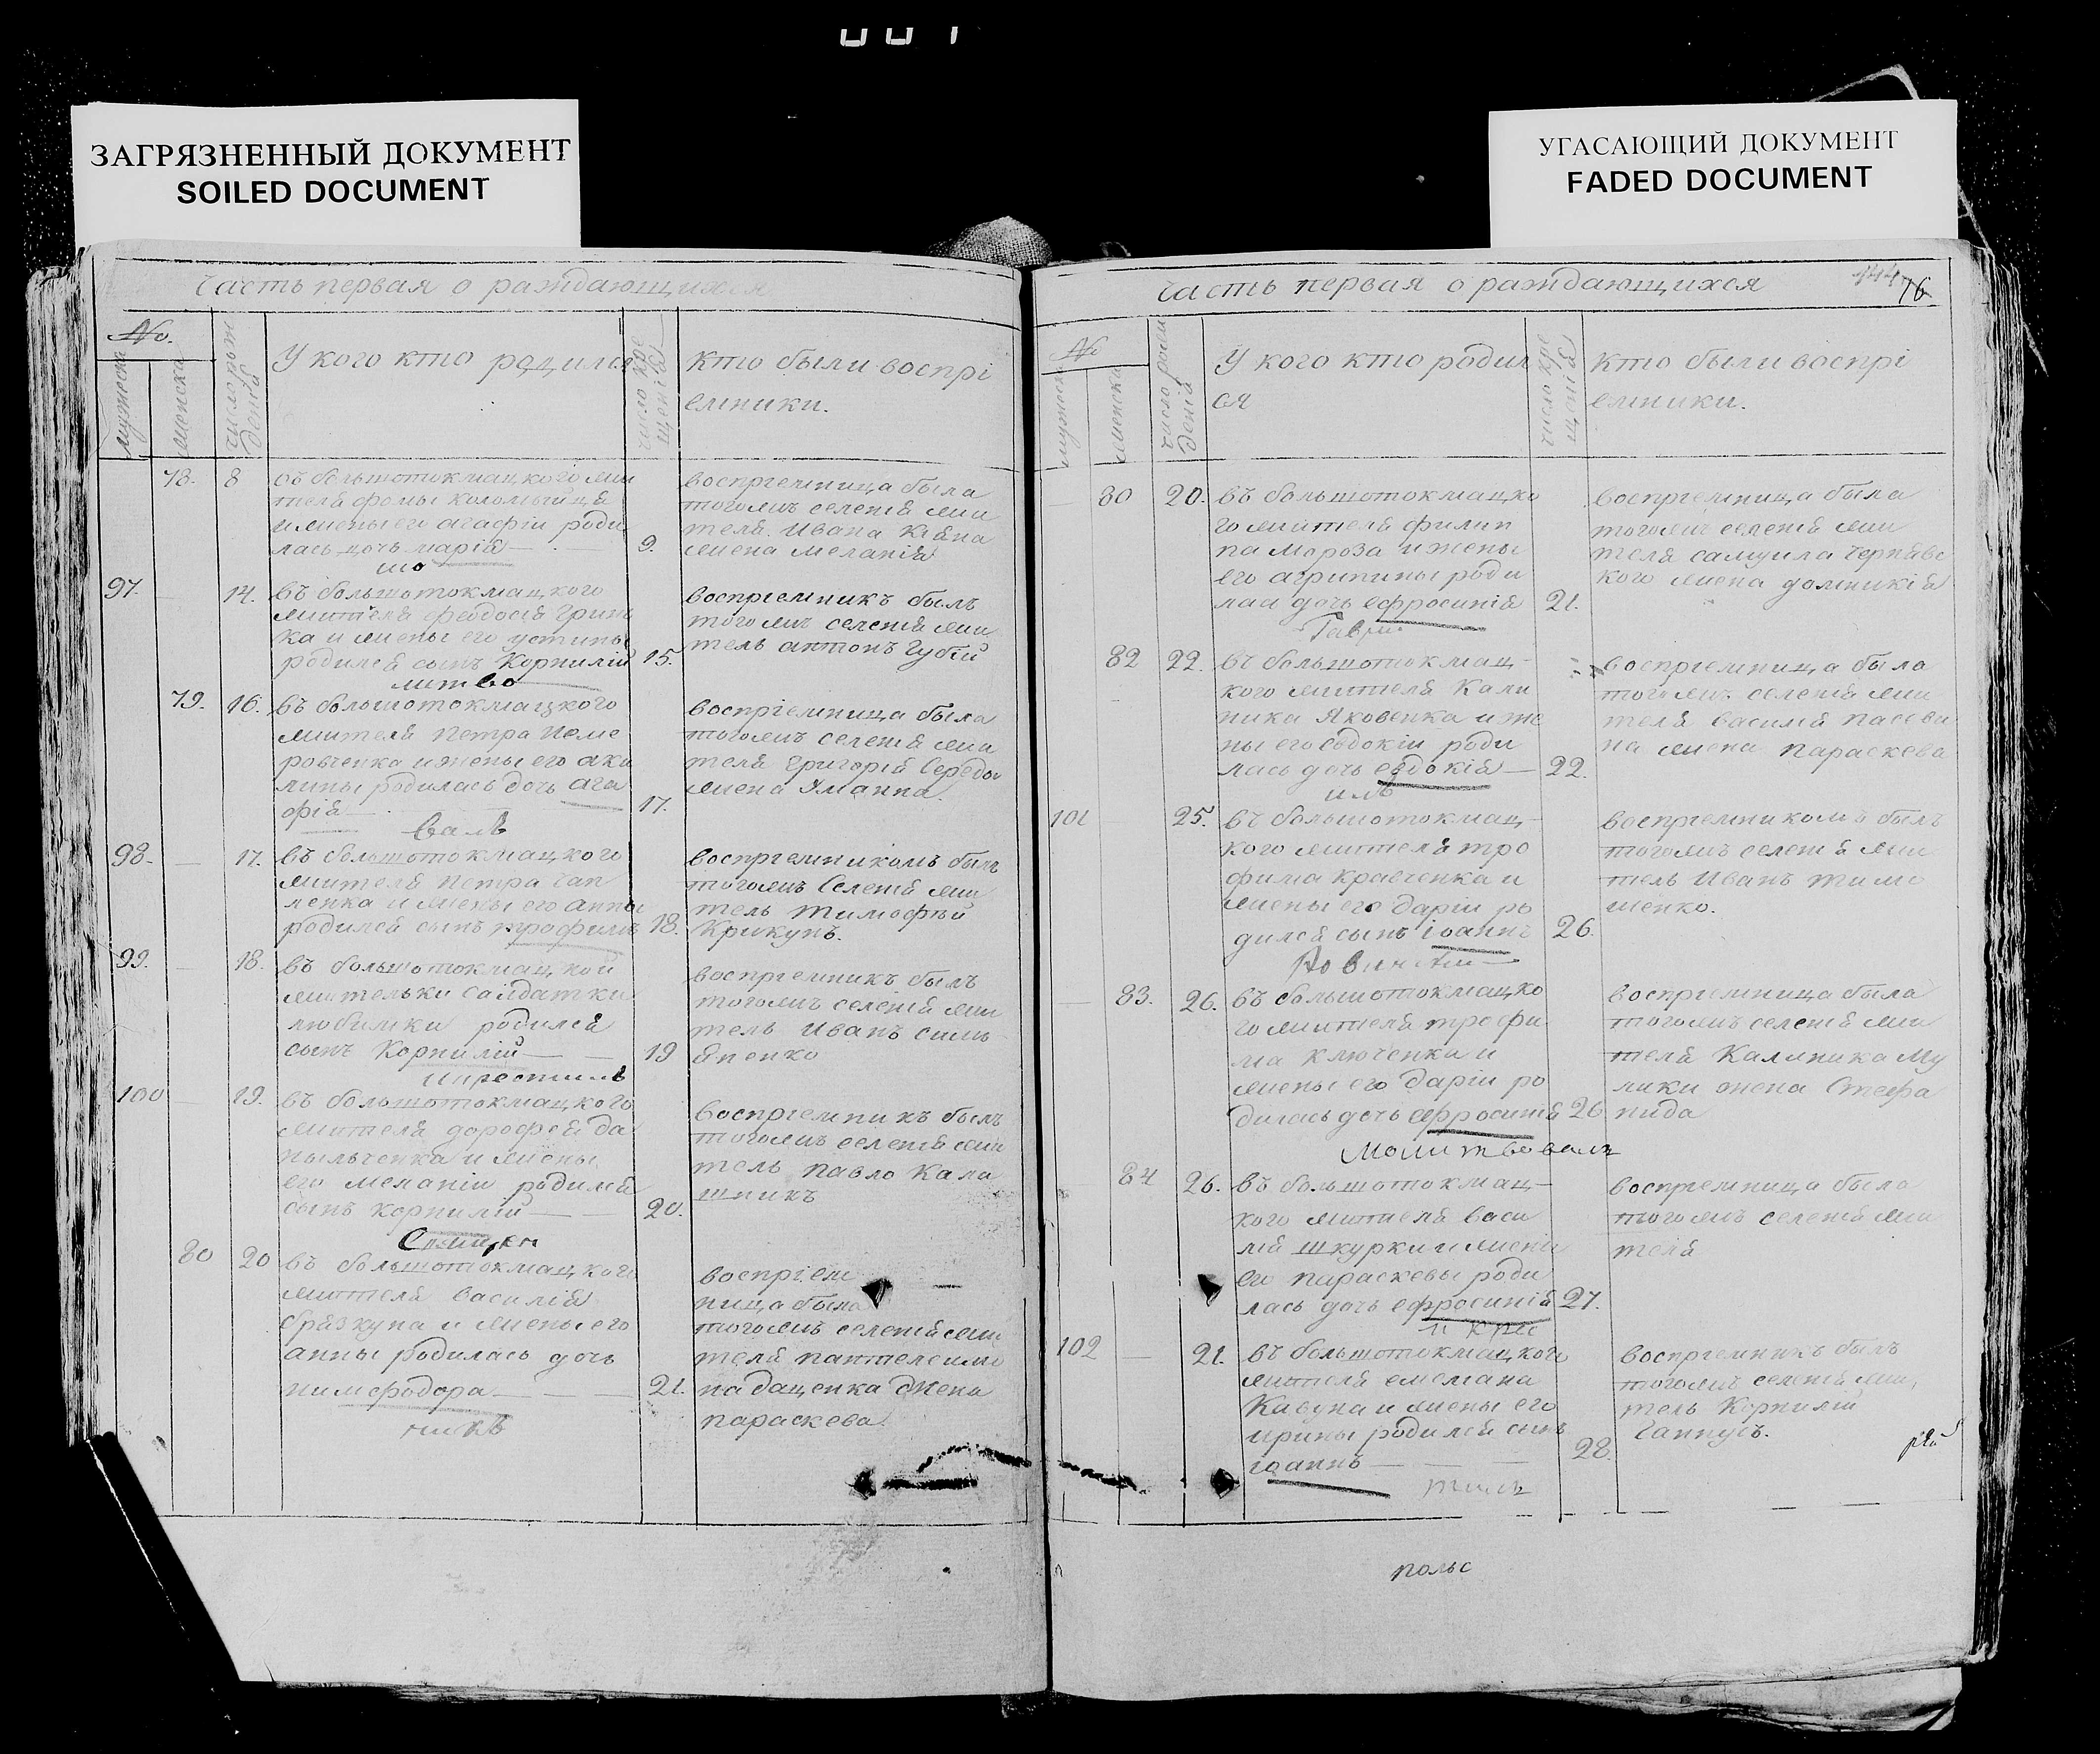 ЗАГРЯЗНЕННЫЙ ДОКУМЕНТ
SOILED DOCUMENT
УГАСАЮЩИЙ ДОКУМЕНТ
FADED DOCUMENT
часть первая о раждающихся
No.
мужеска
женска
число рож
денія
У кого кто родился
число кре
щенія
кто были воспрі
емники.
78. 8
въ большотокмацкого жи
теля фомы коломыйца
и жены его агафіи роди
лась дочь марія
9.
воспріемница была
тогожъ селенія жи
теля Ивана
жена меланія
97. 14.
въ большотокмацкого
жителя феодосія гринь
ка и жены его устины
родился сынъ Корнилій
15.
воспріемникъ былъ
тогожъ селенія жи
тель антонъ губій
79. 16.
въ большотокмацкого
жителя Петра Неме
ровченка и жены его аки
лины родилась дочь ага
фія
17.
воспріемница была
тогожъ селенія жи
теля григорія Середы
жена Уліанна
валъ
98. 17.
въ большотокмацкого
жителя Петра чап
ленка и жены его анны
родился сынъ трофимъ
18.
воспріемникомъ былъ
тогожъ Селенія жи
тель тимофѣй
Крикунъ.
99. 18.
въ большотокмацкой
жительки салдатки
любимки родился
сынъ Корнилій
19
воспріемникъ былъ
тогожъ селенія жи
тель Иванъ симь
яненко
и крестилъ
100 19.
въ большотокмацкого
жителя дорофея да
ныльченка и жены
его меланіи родился
сынъ корнилій
20.
воспріемникъ былъ
тогожъ селенія жи
тель павло Кала
шникъ
Священ
80 20
въ большотокмацкого
жителя василія
брязкуна и жены его
анны родилась дочь
нимфодора
21.
воспріем
ница была
тогожъ селенія жи
теля пантелеимо
на даценка жена
параскева
никъ
часть первая о раждающихся
144
76
No
мужеска
женска
число рож
денія
У кого кто родил
ся
число кре
щенія
кто были воспрі
емники.
80 20.
въ большотокмацко
го жителя филип
па мороза и жены
его агрипины роди
лась дочь ефросинія
21.
воспріемница была
тогожъ селенія жи
теля самуила чернявс
кого жена домникія
Гаврі
82 22.
въ большотокмац-
кого жителя Кали
ника Яковенка и же
ны его евдокіи роди
лась дочь евдокія
22.
воспріемница была
тогожъ селенія жи
теля василія пасеви
на жена параскева
илъ
101 25.
въ большотокмац-
кого жителя тро
фима кравченка и
жены его даріи ро
дился сынъ іоаннъ
26.
воспріемникомъ былъ
тогожъ селенія жи
тель Иванъ тимо
шенко.
83. 26.
въ большотокмацко
го жителя трофи
ма ключенка и
жены его даріи ро
дилась дочь ефросинія
26
воспріемница была
тогожъ селенія жи
теля Калиника му
лики жена Стефа
нида
молитвовалъ
84 26.
въ большотокмац-
кого жителя васи
лія шкурки и жены
его параскевы роди
лась дочь ефросинія
27.
воспріемница была
тогожъ селенія жи
теля
и крес
102 21.
въ большотокмацкого
жителя емеліана
Кавуна и жены его
ирины родился сынъ
іоаннъ
28.
воспріемникъ былъ
тогожъ селенія жи,
тель Корнилій
Ганнусъ.
тилъ
польс